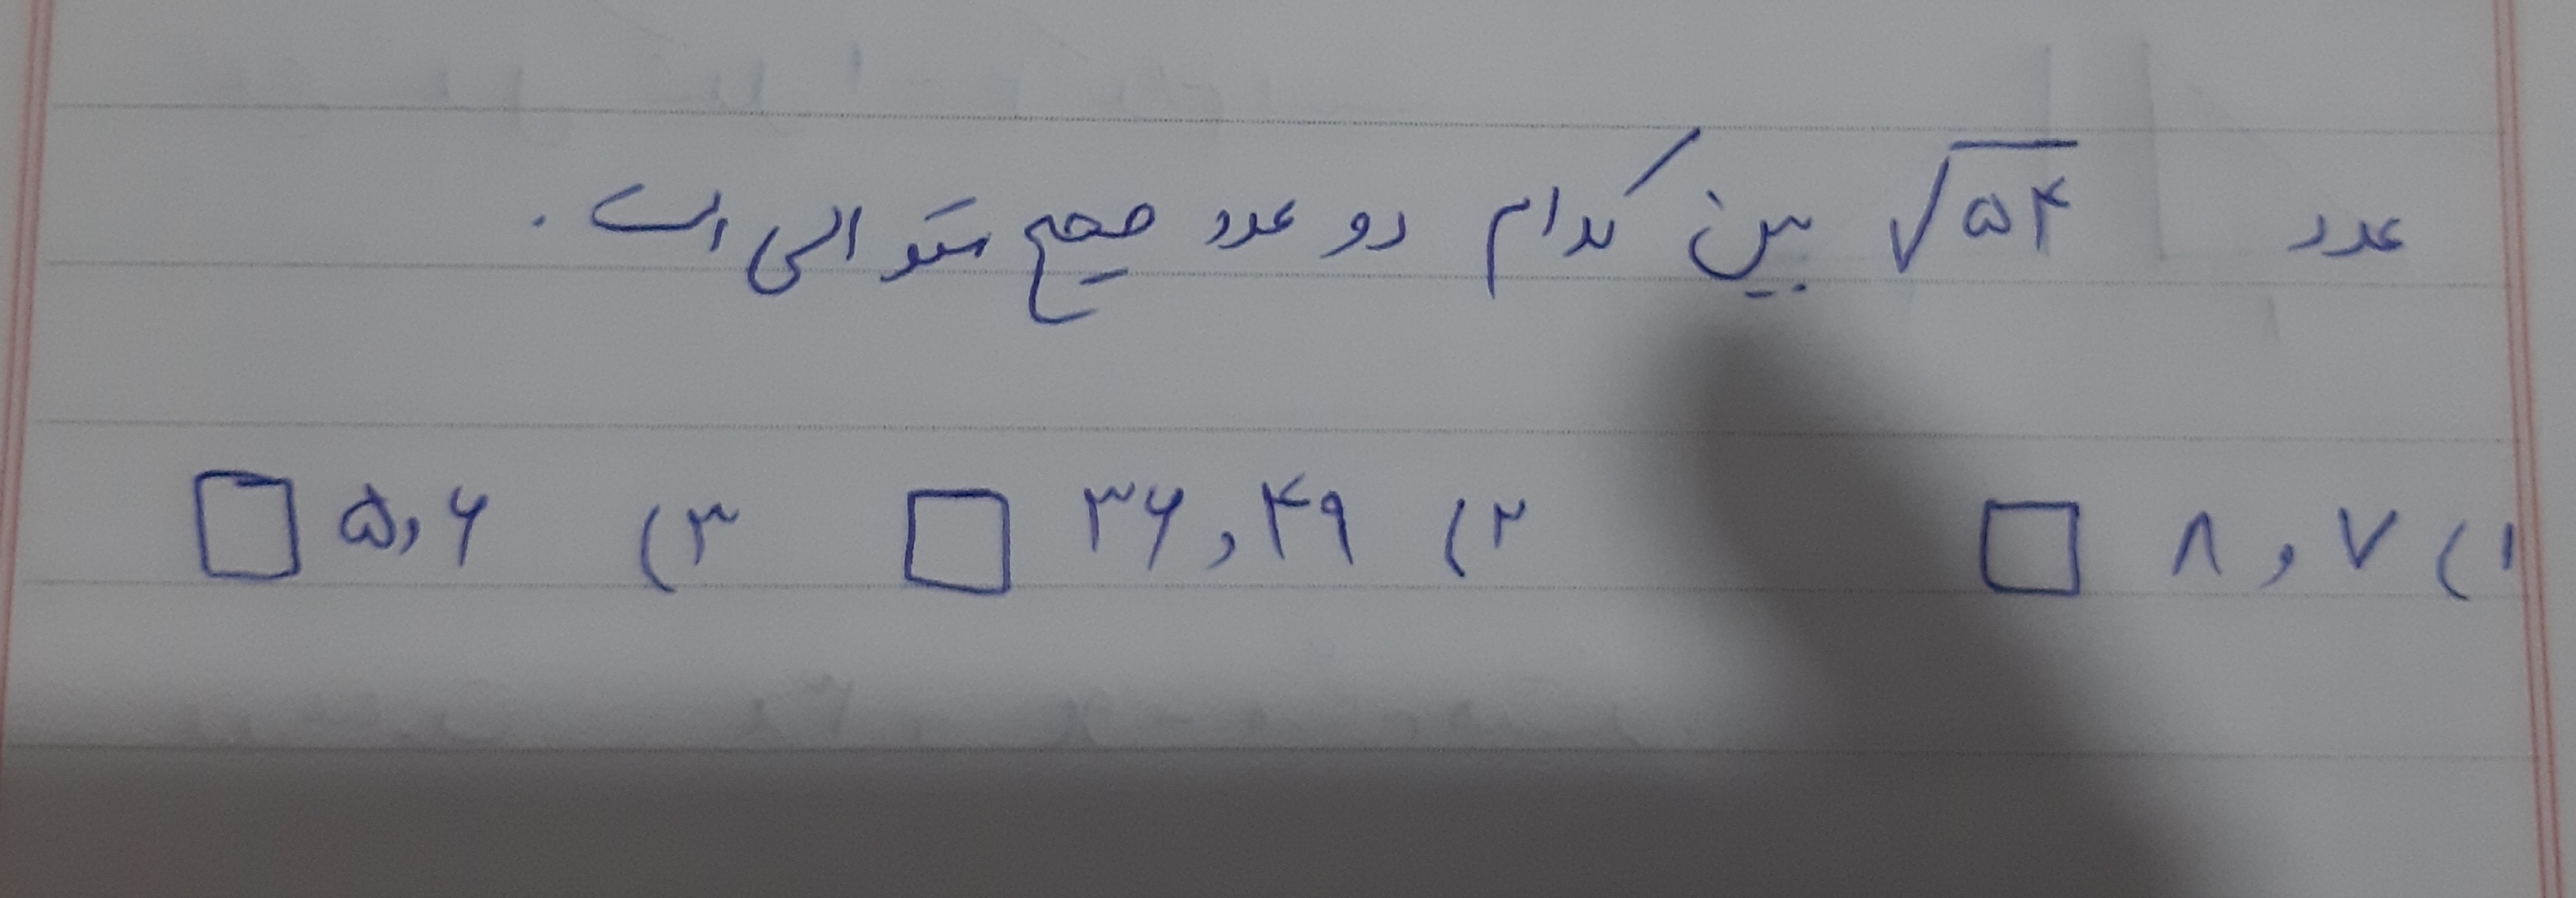 عدد √۵۴ بین کدام دو عدد صحیح متوالی است .
۱) ۷ و ۸ □ ۲) ۳۶ و ۴۹ □ ۳) ۵ و ۶ □